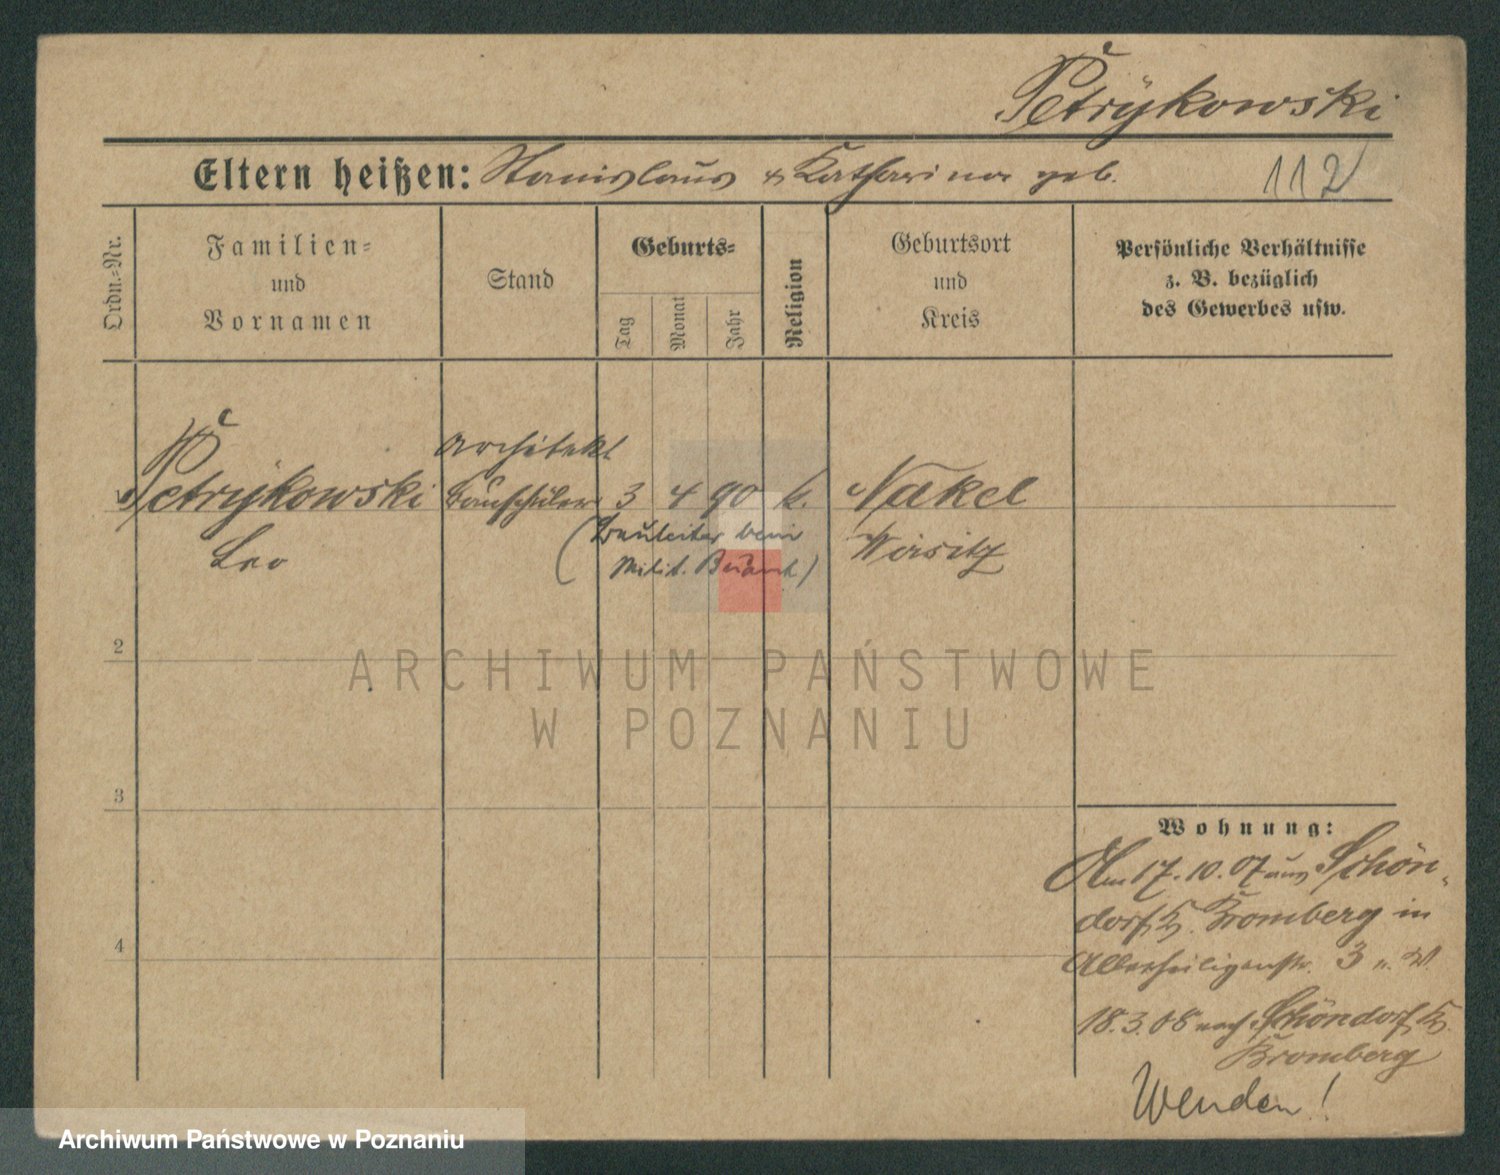 Petrÿkowski
Eltern heißen: Stanislaus & Katharina geb.
112
Ordn.-Nr.
Familien-
und
Vornamen
Stand
Geburts-
Tag
Monat
Jahr
Religion
Geburtsort
und
Kreis
Persönliche Verhältnisse
z. B. bezüglich
des Gewerbes usw.
Architekt
Petrÿkowski Bauschüler 3 4 90 k. Nakel
Leo
(Bauleiter beim
Milit. Bauamt)
Wirsitz
2
3
4
Wohnung:
Am 17.10.07 aus Schön-
dorf K. Bromberg in
Allerheiligenstr. 3 u. W.
18.3.08 nach Schöndorf K.
Bromberg
Wenden!
ARCHIWUM PAŃSTWOWE
W POZNANIU
Archiwum Państwowe w Poznaniu